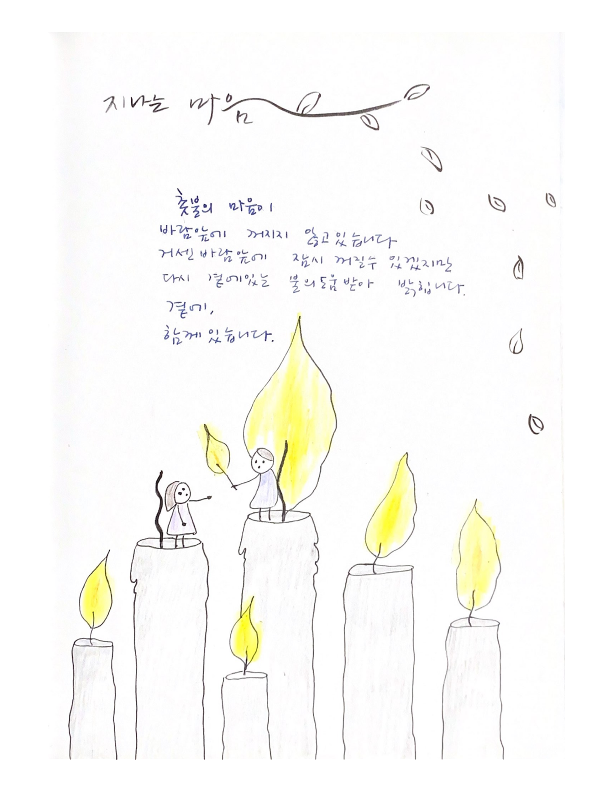 지나는 마음
촛불의 마음이
바람앞에 꺼지지 않고 있습니다
거센 바람앞에 잠시 꺼질수 있겠지만
다시 곁에있는 불의 도움 받아 밝힙니다.
곁에,
함께 있습니다.